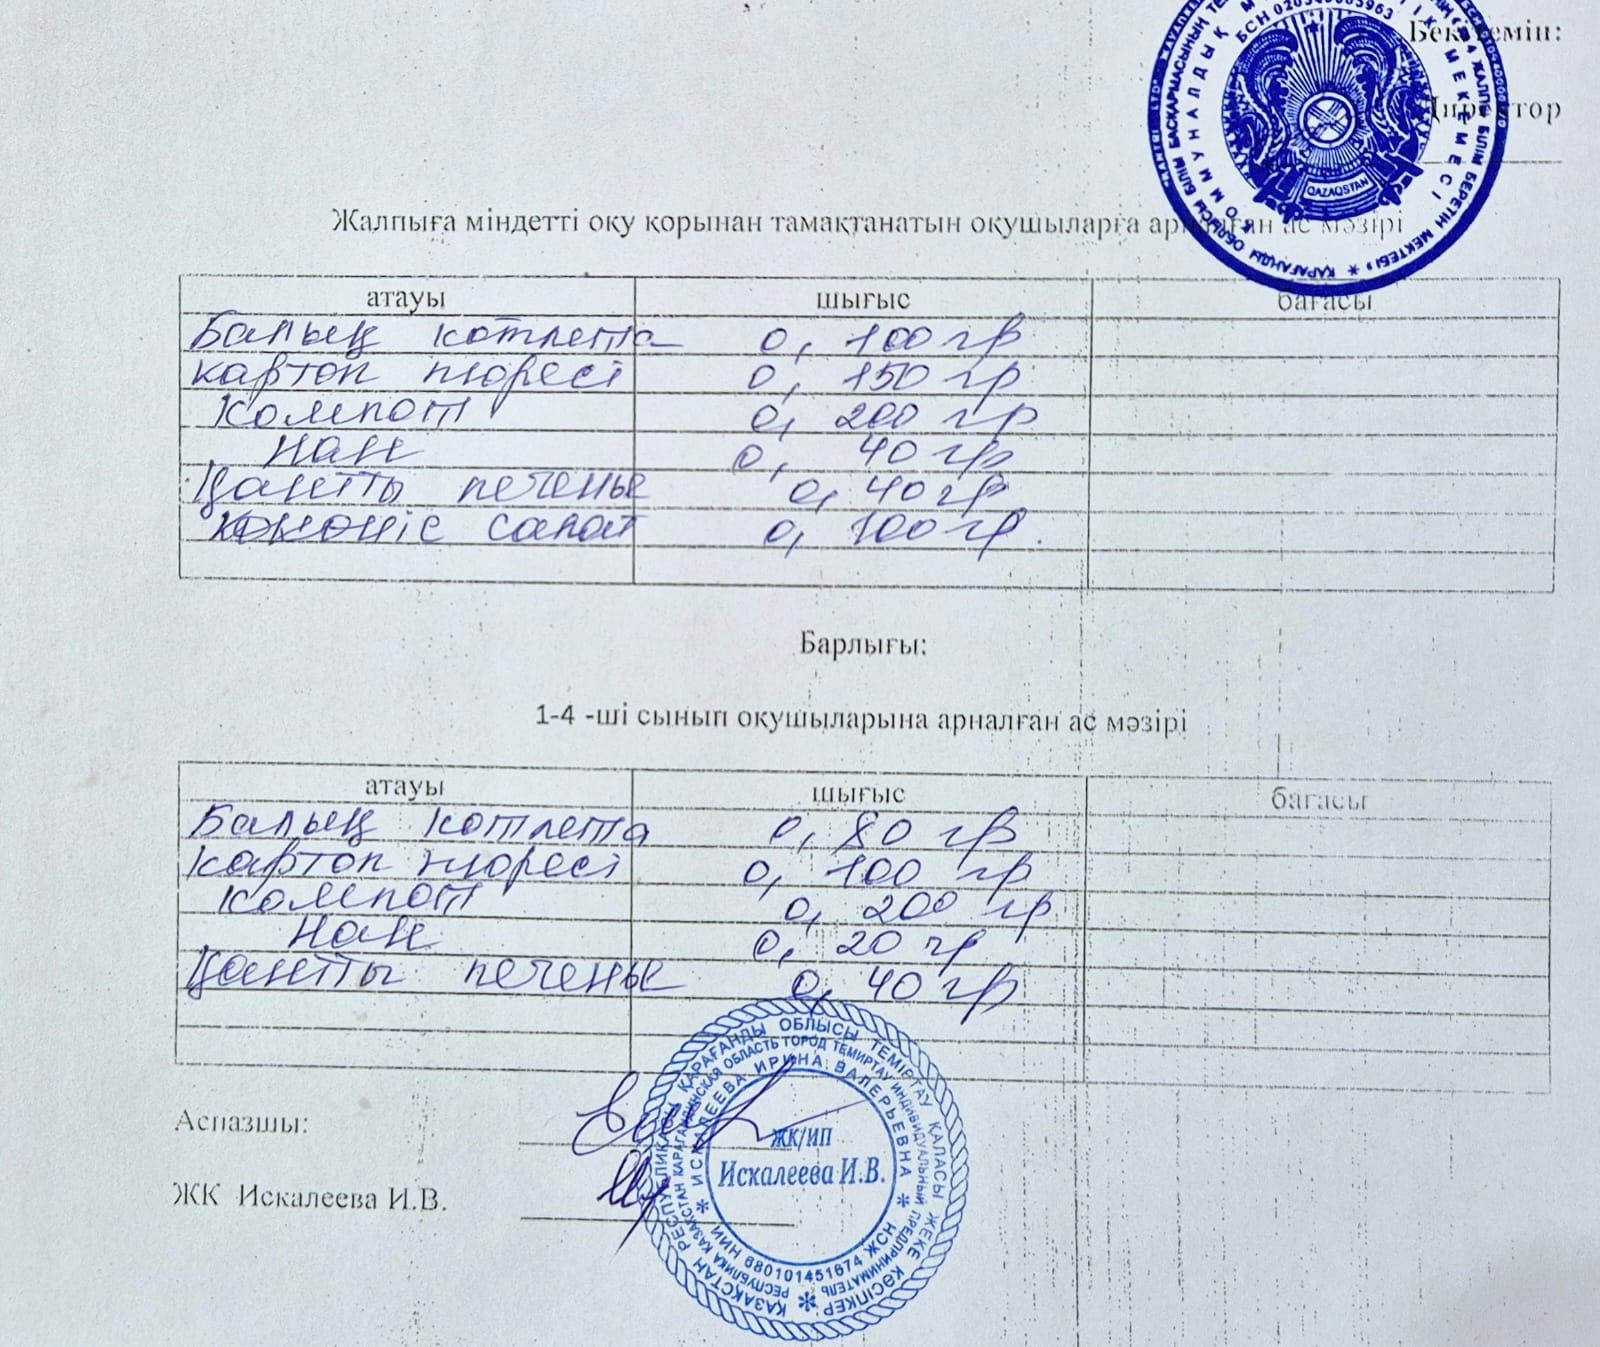 Бекітемін:
Директор
БСН
QAZAQSTAN
Жалпыға міндетті оқу қорынан тамақтанатын оқушыларға арналған ас мәзірі
атауы шығыс бағасы
Балық котлета 0, 100 гр
картоп пюресі 0, 150 гр
компот 0, 200 гр
нан 0, 40 гр
Қантты печенье 0, 40 гр
көкөніс салат 0, 100 гр.
Барлығы:
1-4 -ші сынып оқушыларына арналған ас мәзірі
атауы шығыс бағасы
Балық котлета 0, 80 гр
картоп пюресі 0, 100 гр
компот 0, 200 гр
нан 0, 20 гр
Қантты печенье 0, 40 гр
Аспазшы:
ЖК Искалеева И.В.
ҚАЗАҚСТАН РЕСПУБЛИКАСЫ ҚАРАҒАНДЫ ОБЛЫСЫ ТЕМІРТАУ ҚАЛАСЫ ЖЕКЕ КӘСІПКЕР
РЕСПУБЛИКА КАЗАХСТАН КАРАГАНДИНСКАЯ ОБЛАСТЬ ГОРОД ТЕМИРТАУ ИНДИВИДУАЛЬНЫЙ ПРЕДПРИНИМАТЕЛЬ
ИСКАЛЕЕВА ИРИНА ВАЛЕРЬЕВНА
ЖК/ИП
Искалеева И.В.
ИИН 680101451674 ЖСН